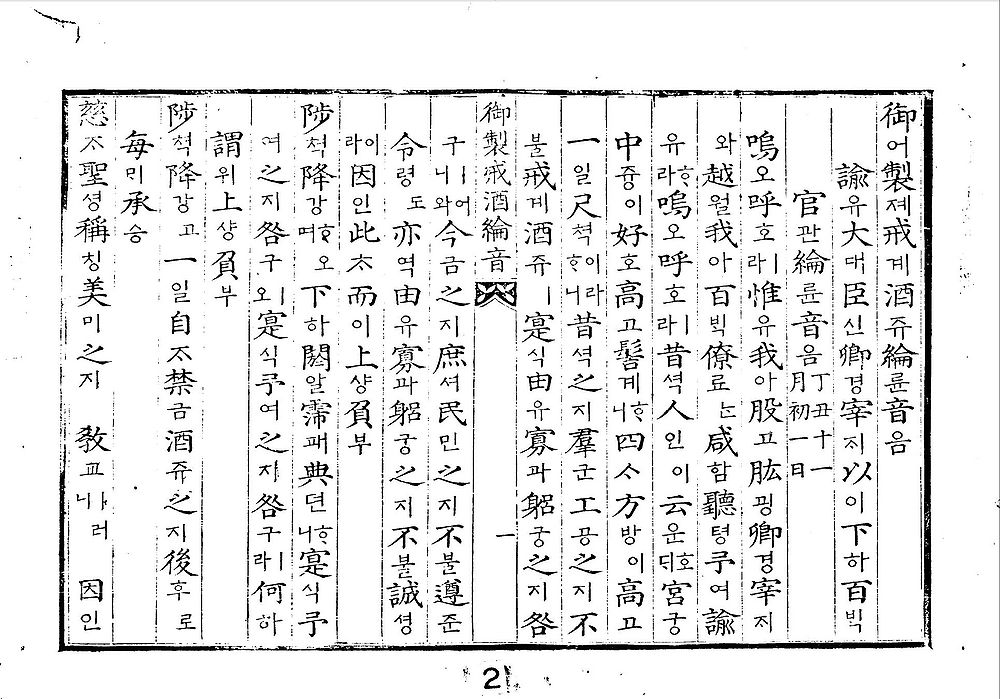 御어製졔戒계酒쥬綸륜音음
諭유大대臣신卿경宰ᄌᆡ以이下하百ᄇᆡᆨ
官관綸륜音음丁丑十一月初一日
嗚오呼호ㅣ라惟유我아股고肱굉卿경宰ᄌᆡ
와越월我아百ᄇᆡᆨ僚료ᄂᆞᆫ咸함聽텽予여諭
유ᄒᆞ라嗚오呼호ㅣ라昔셕人인이云운호ᄃᆡ宮궁
中즁이好호高고髻계ᄒᆞ니四ᄉᆞ方방이高고
一일尺쳑이라ᄒᆞ니昔셕之지羣군工공之지不
불戒계酒쥬ㅣ寔식由유寡과躳궁之지咎
御製戒酒綸音 一
구ㅣ어니와今금之지庶셔民민之지不불遵쥰
令령도亦역由유寡과躳궁之지不불誠셩
이라因인此ᄎᆞ而이上샹負부
陟쳑降강ᄒᆞ며오下하閼알霈패典뎐ᄒᆞ니寔식予
여之지咎구ㅣ오寔식予여之지咎구ㅣ라何하
謂위上샹負부
陟쳑降강고一일自ᄌᆞ禁금酒쥬之지後후로
每ᄆᆡ承승
慈ᄌᆞ聖셩稱칭美미之지 敎교ㅣ러니 因인
2